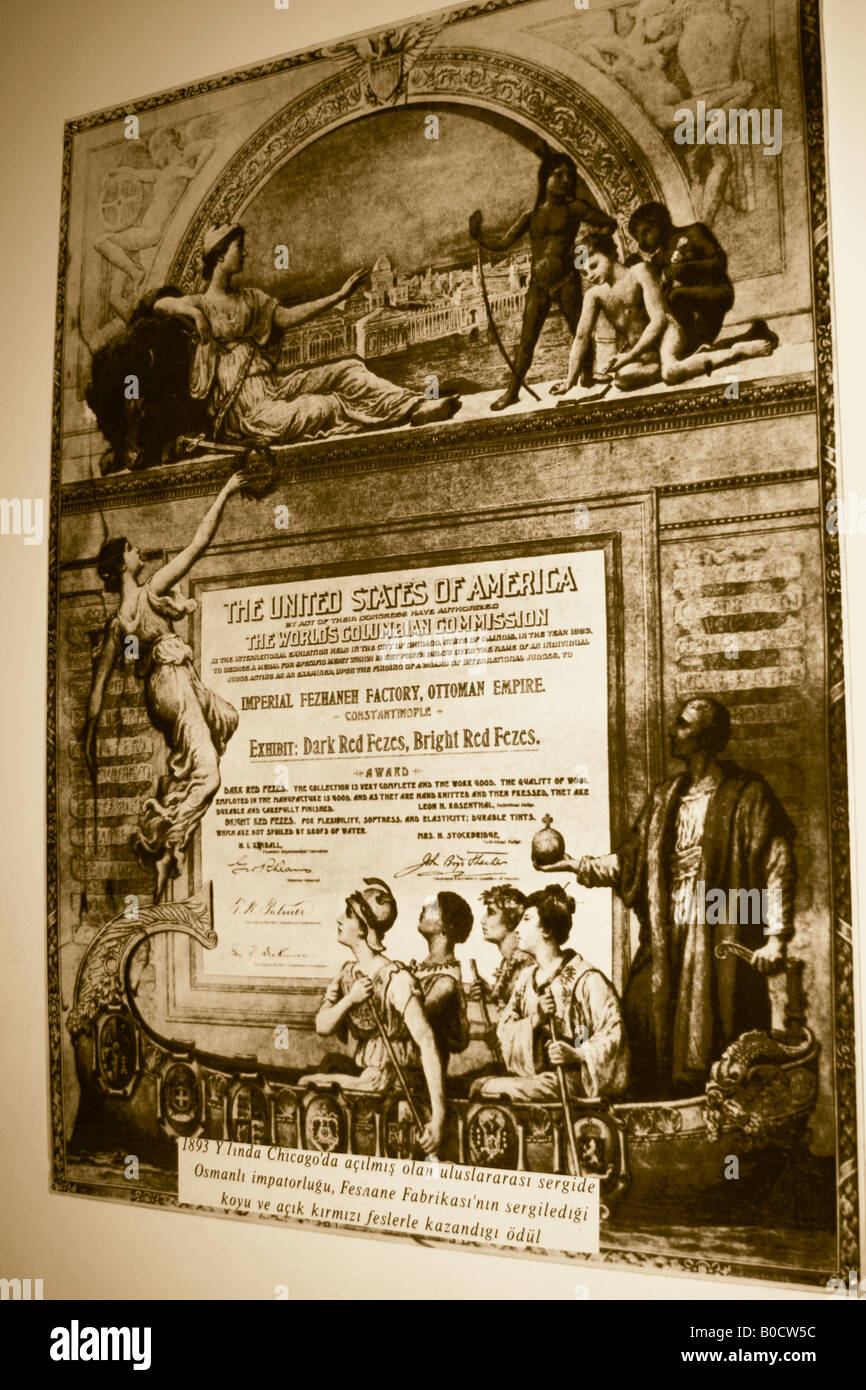 THE UNITED STATES OF AMERICA
BY ACT OF THEIR CONGRESS HAVE AUTHORIZED
THE WORLD'S COLUMBIAN COMMISSION
AT THE INTERNATIONAL EXHIBITION HELD IN THE CITY OF CHICAGO, STATE OF ILLINOIS, IN THE YEAR 1893,
TO DECREE A MEDAL FOR SPECIFIC MERIT WHICH IS SET FORTH BELOW OVER THE NAME OF AN INDIVIDUAL
JUDGE ACTING AS AN EXAMINER, UPON THE FINDING OF A BOARD OF INTERNATIONAL JUDGES, TO
IMPERIAL FEZHANEH FACTORY, OTTOMAN EMPIRE.
- CONSTANTINOPLE -
EXHIBIT: Dark Red Fezes, Bright Red Fezes.
AWARD
DARK RED FEZES. THE COLLECTION IS VERY COMPLETE AND THE WORK GOOD. THE QUALITY OF WOOL
EMPLOYED IN THE MANUFACTURE IS GOOD, AND AS THEY ARE HAND KNITTED AND THEN PRESSED, THEY ARE
DURABLE AND CAREFULLY FINISHED. LEON H. ROSENTHAL, Individual Judge.
BRIGHT RED FEZES. FOR FLEXIBILITY, SOFTNESS, AND ELASTICITY; DURABLE TINTS,
WHICH ARE NOT SPOILED BY DROPS OF WATER. MRS. H. STOCKBRIDGE, Individual Judge.
H. I. KIMBALL,
John Boyd Thacher
T W Palmer
1893 Y'lında Chicago'da açılmış olan uluslararası sergide
Osmanlı impatorluğu, Feshane Fabrikası'nın sergilediği
koyu ve açık kırmızı feslerle kazandıgı ödül
alamy
alamy
Image ID: B0CW5C
www.alamy.com